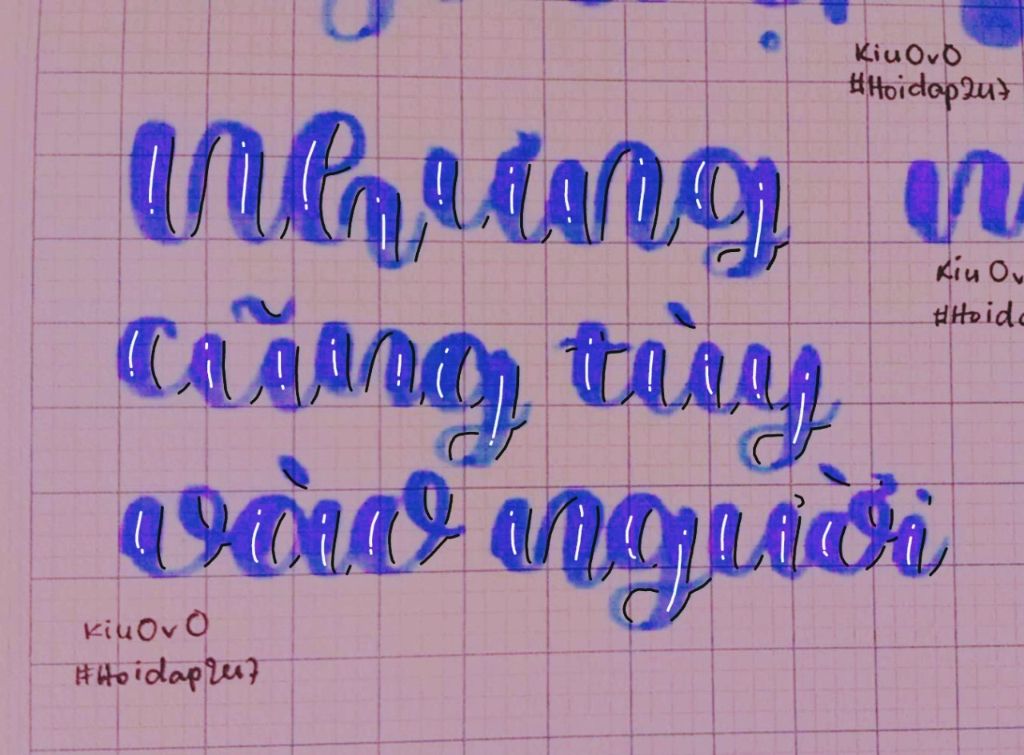 KiuOvO
#Hoidap247
Nhưng
KiuOv
#Hoid
cũng tùy
vào người
KiuOvO
#Hoidap247